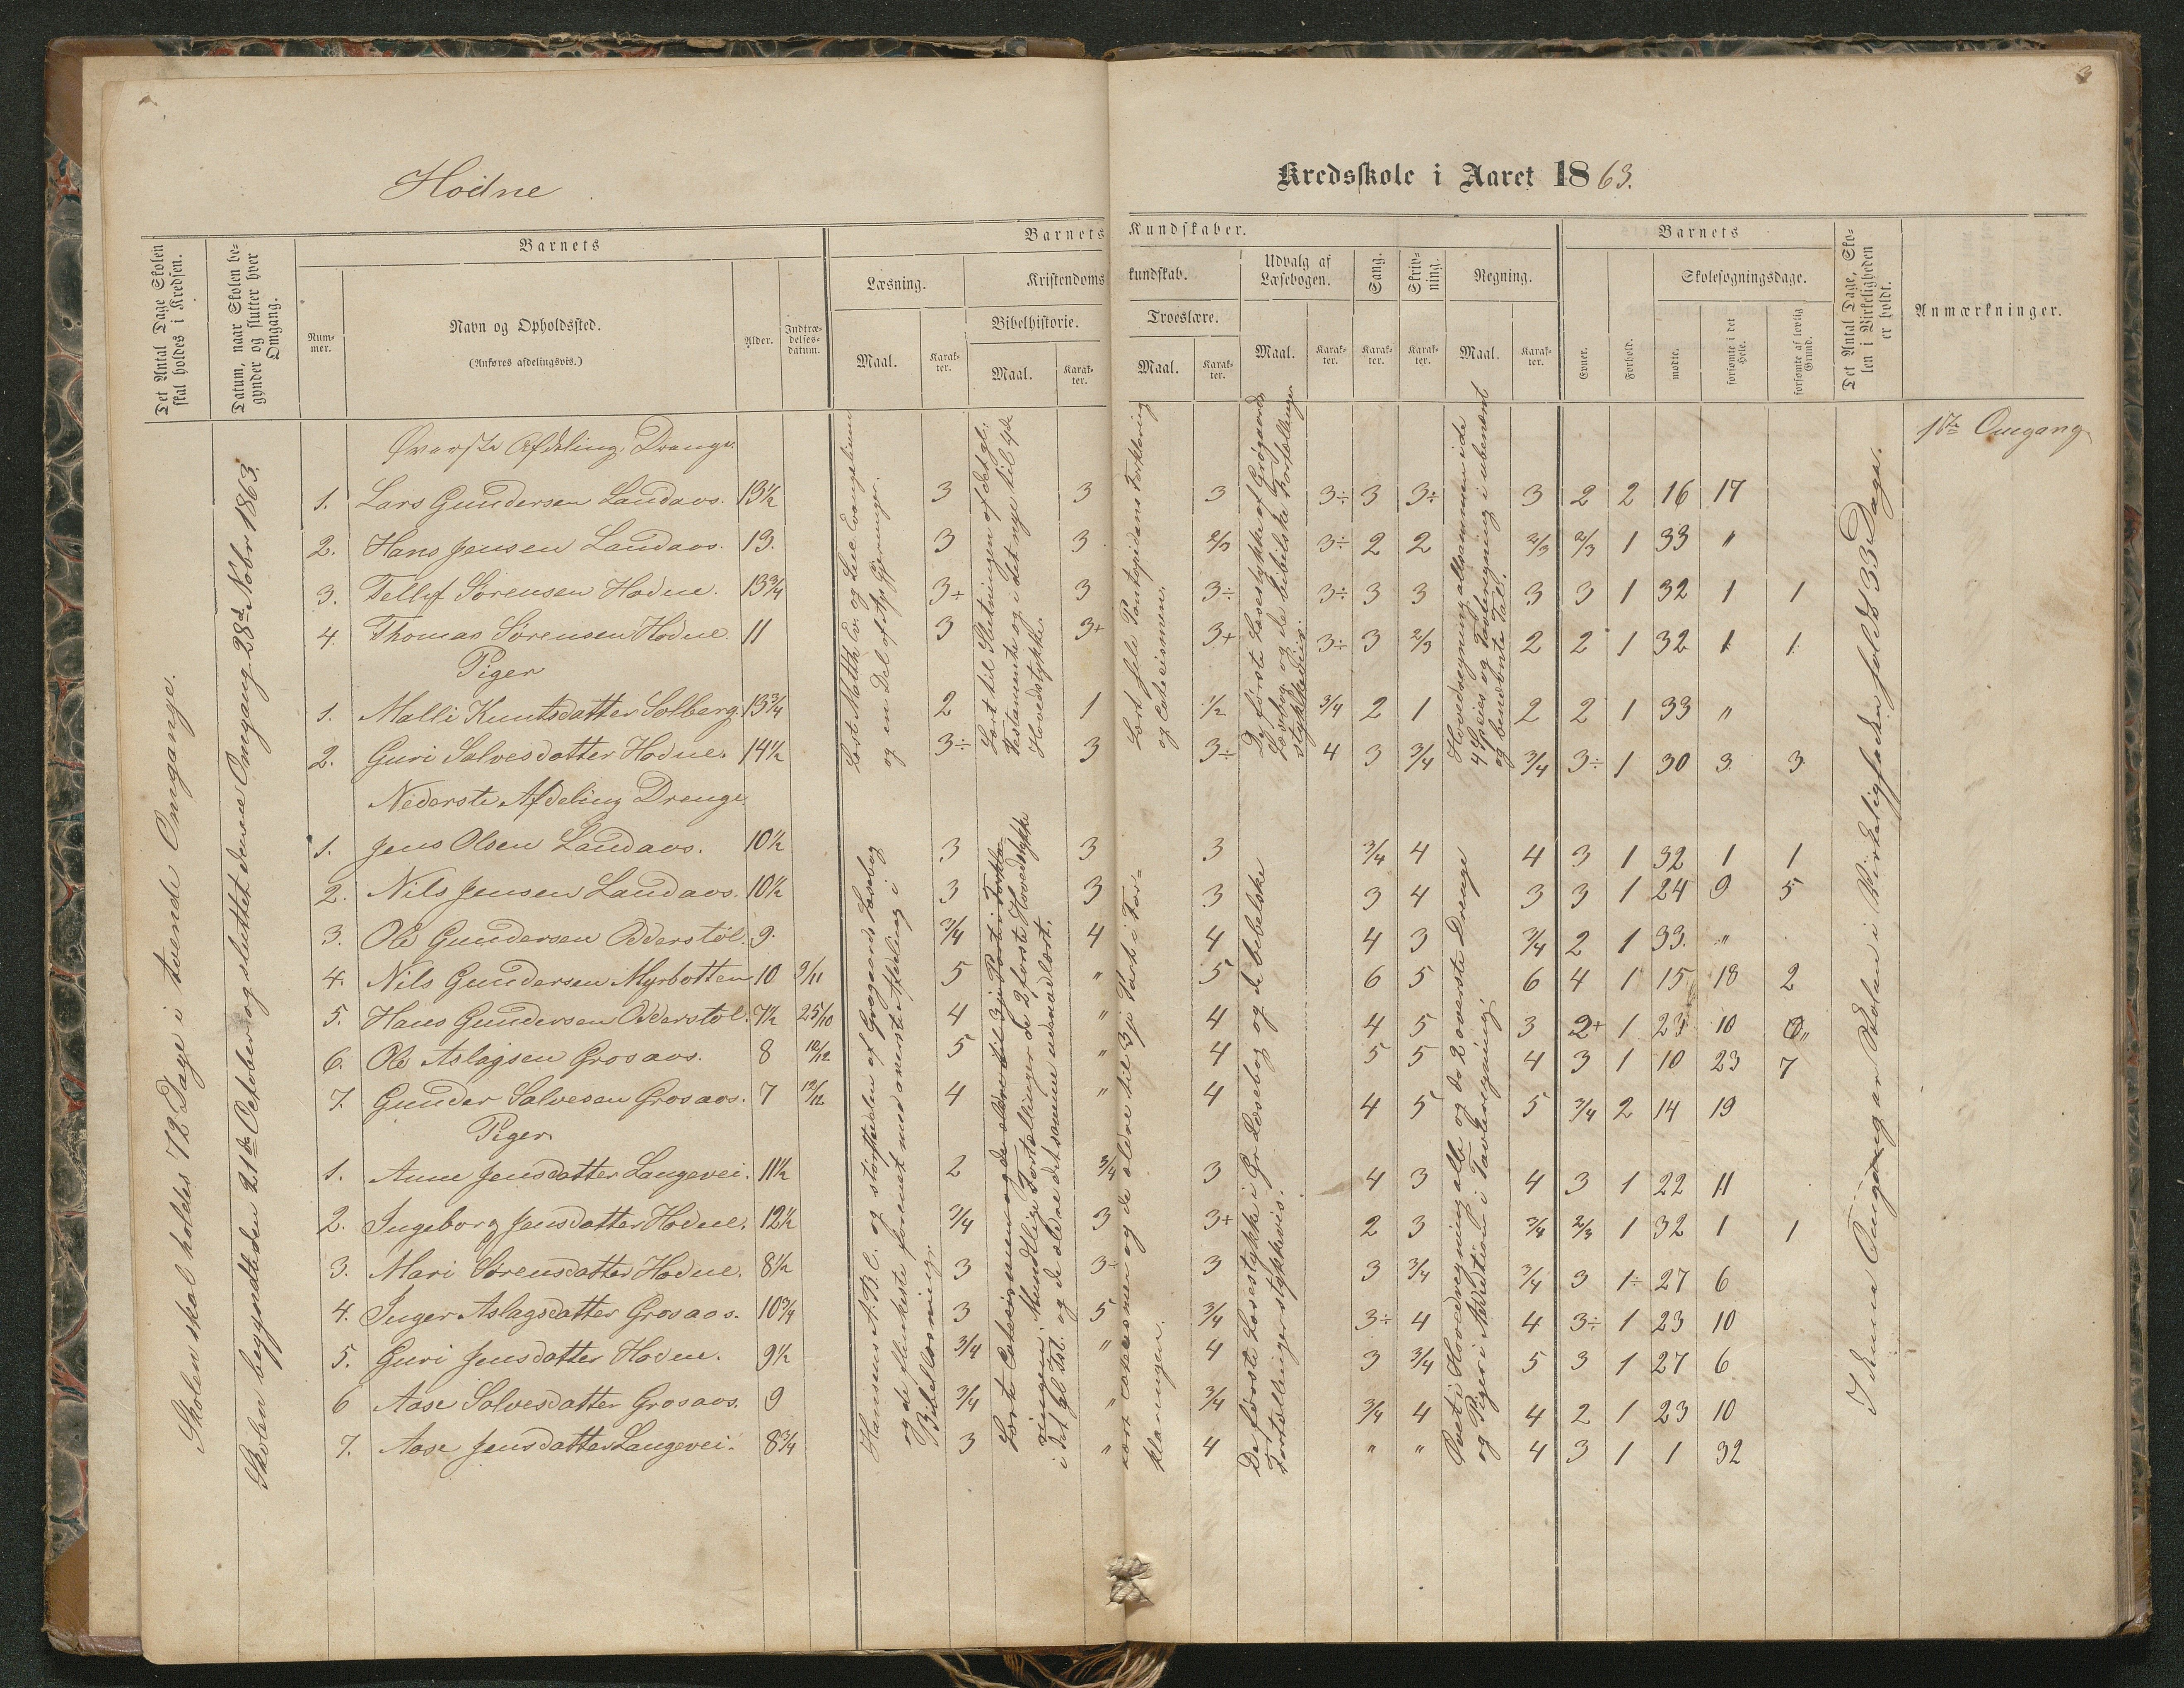 3
Hodne
Kredsskole i Aaret 1863.
Det Antal Dage Skolen skal holdes i Kredsen.
Datum, naar Skolen begynder og slutter hver Omgang.
Barnets
Nummer.
Navn og Opholdssted.
(Anføres afdelingsvis.)
Alder.
Indtrædelsesdatum.
Barnets Kundskaber.
Læsning.
Maal.
Karakter.
Kristendomskundskab.
Bibelhistorie.
Maal.
Karakter.
Troeslære.
Maal.
Karakter.
Udvalg af Læsebogen.
Maal.
Karakter.
Sang.
Karakter.
Skrivning.
Karakter.
Regning.
Maal.
Karakter.
Barnets
Evner.
Forhold.
Skolesøgningsdage.
mødte.
forsømte i det Hele.
forsømte af lovlig Grund.
Det Antal Dage, Skolen i Virkeligheden er holdt.
Anmærkninger.
1ste Omgang
Skolen skal holdes 72 Dage i tvende Omgange.
Skolen begyndte den 21de October og sluttet denne Omgang 28de Nobr 1863.
Øverste Afdeling, Drenge.
1. Lars Gundersen Landaas. 13½ 3 3 3 3÷ 3 3÷ 3 2 2 16 17
2. Hans Jensen Landaas. 13. 3 3 2/3 3÷ 2 2 2/3 2/3 1 33 "
3. Tellef Sørensen Hodne. 13¾ 3÷ 3 3÷ 3÷ 3 3 3 3 1 32 1 1
4. Thomas Sørensen Hodne. 11 3 3+ 3+ 3÷ 3 2/3 2 2 1 32 1 1
Piger
1. Malli Knutsdatter Solberg. 13¾ 2 1 1/2 3/4 2 1 2 2 1 33 "
2. Guri Salvesdatter Hodne. 14½ 3÷ 3 3÷ 4 3 3/4 3/4 3÷ 1 30 3 3
Læst Matth. Ev. og Luc. Evangelium
og en Del af Ap. Gjerninger.
Lært til Slutningen af det gl.
Testamente og i det nye til 4de
Hovedstykke.
Lært hele Pontoppidans Forklaring
og Catecismen.
De første Læsestykker af Grøgaards
Læsebog og de bibelske Fortællinger
stykkevis.
Hovedregning allesammen i de
4 Species og Tavleregning i ubenævnt
og benævnte Tal.
Nederste Afdeling Drenge.
1. Jens Olsen Landaas. 10½ 3 3 3 3/4 4 4 3 1 32 1 1
2. Nils Jensen Landaas. 10½ 3 3 3 3 4 3 3 1 24 9 5
3. Ole Gundersen Odderstøl. 9. 3/4 4 4 4 3 3/4 2 1 33. "
4. Nils Gundersen Myrbotten 10 9/11 5 " 5 6 5 6 4 1 15 18 2
5. Hans Gundersen Odderstøl. 7½ 25/10 4 " 4 4 5 3 2+ 1 23 10 "
6. Ole Aslagsen Grosaas. 8 10/12 5 " 4 5 5 4 3 1 10 23 7
7. Gunder Salvesen Grosaas. 7 12/12 4 " 4 4 5 5 3/4 2 14 19
Piger
1. Anne Jensdatter Langevei. 11½ 2 3/4 3 4 3 4 3 1 22 11
2. Ingeborg Jensdatter Hodne. 12½ 3/4 3 3+ 2 3 3/4 2/3 1 32 1 1
3. Mari Sørensdatter Hodne. 8½ 3 3- 3 3 3/4 3/4 3 1÷ 27 6
4. Inger Aslagsdatter Grosaas. 10¾ 3 5 3/4 3÷ 4 4 3÷ 1 23 10
5. Guri Jensdatter Hodne. 9½ 3/4 " 4 3 3/4 5 3 1 27 6
6 Aase Salvesdatter Grosaas. 9 3/4 " 3/4 3/4 4 4 2 1 23 10
7. Aase Jensdatter Langevei. 8¾ 3 " 4 " " 4 3 1 1 32
Hansens A.B.C. og størstedelen af Grøgaards Læsebog
og de flinkeste forenet med øverste Afdeling i
Bibellæsning.
Lært Catecismen og de ældre til 3je Part i Forkla-
ringen. Mundtlige Fortællinger de 2 første Hovedstykker
i det gl. Tst. og de ældre det samme udenadlært.
lært Catecismen og de ældre til 3je Part i For=
klaringen.
De første Læsestykker i Gr. Læsebog og de bibelske
Fortællinger stykkevis.
Øvet i Hovedregning alle og de 2 øverste Drenge
og Piger i Addition i Tavleregning.
I denne Omgang er Skolen i Virkeligheden holdt 33 Dage.